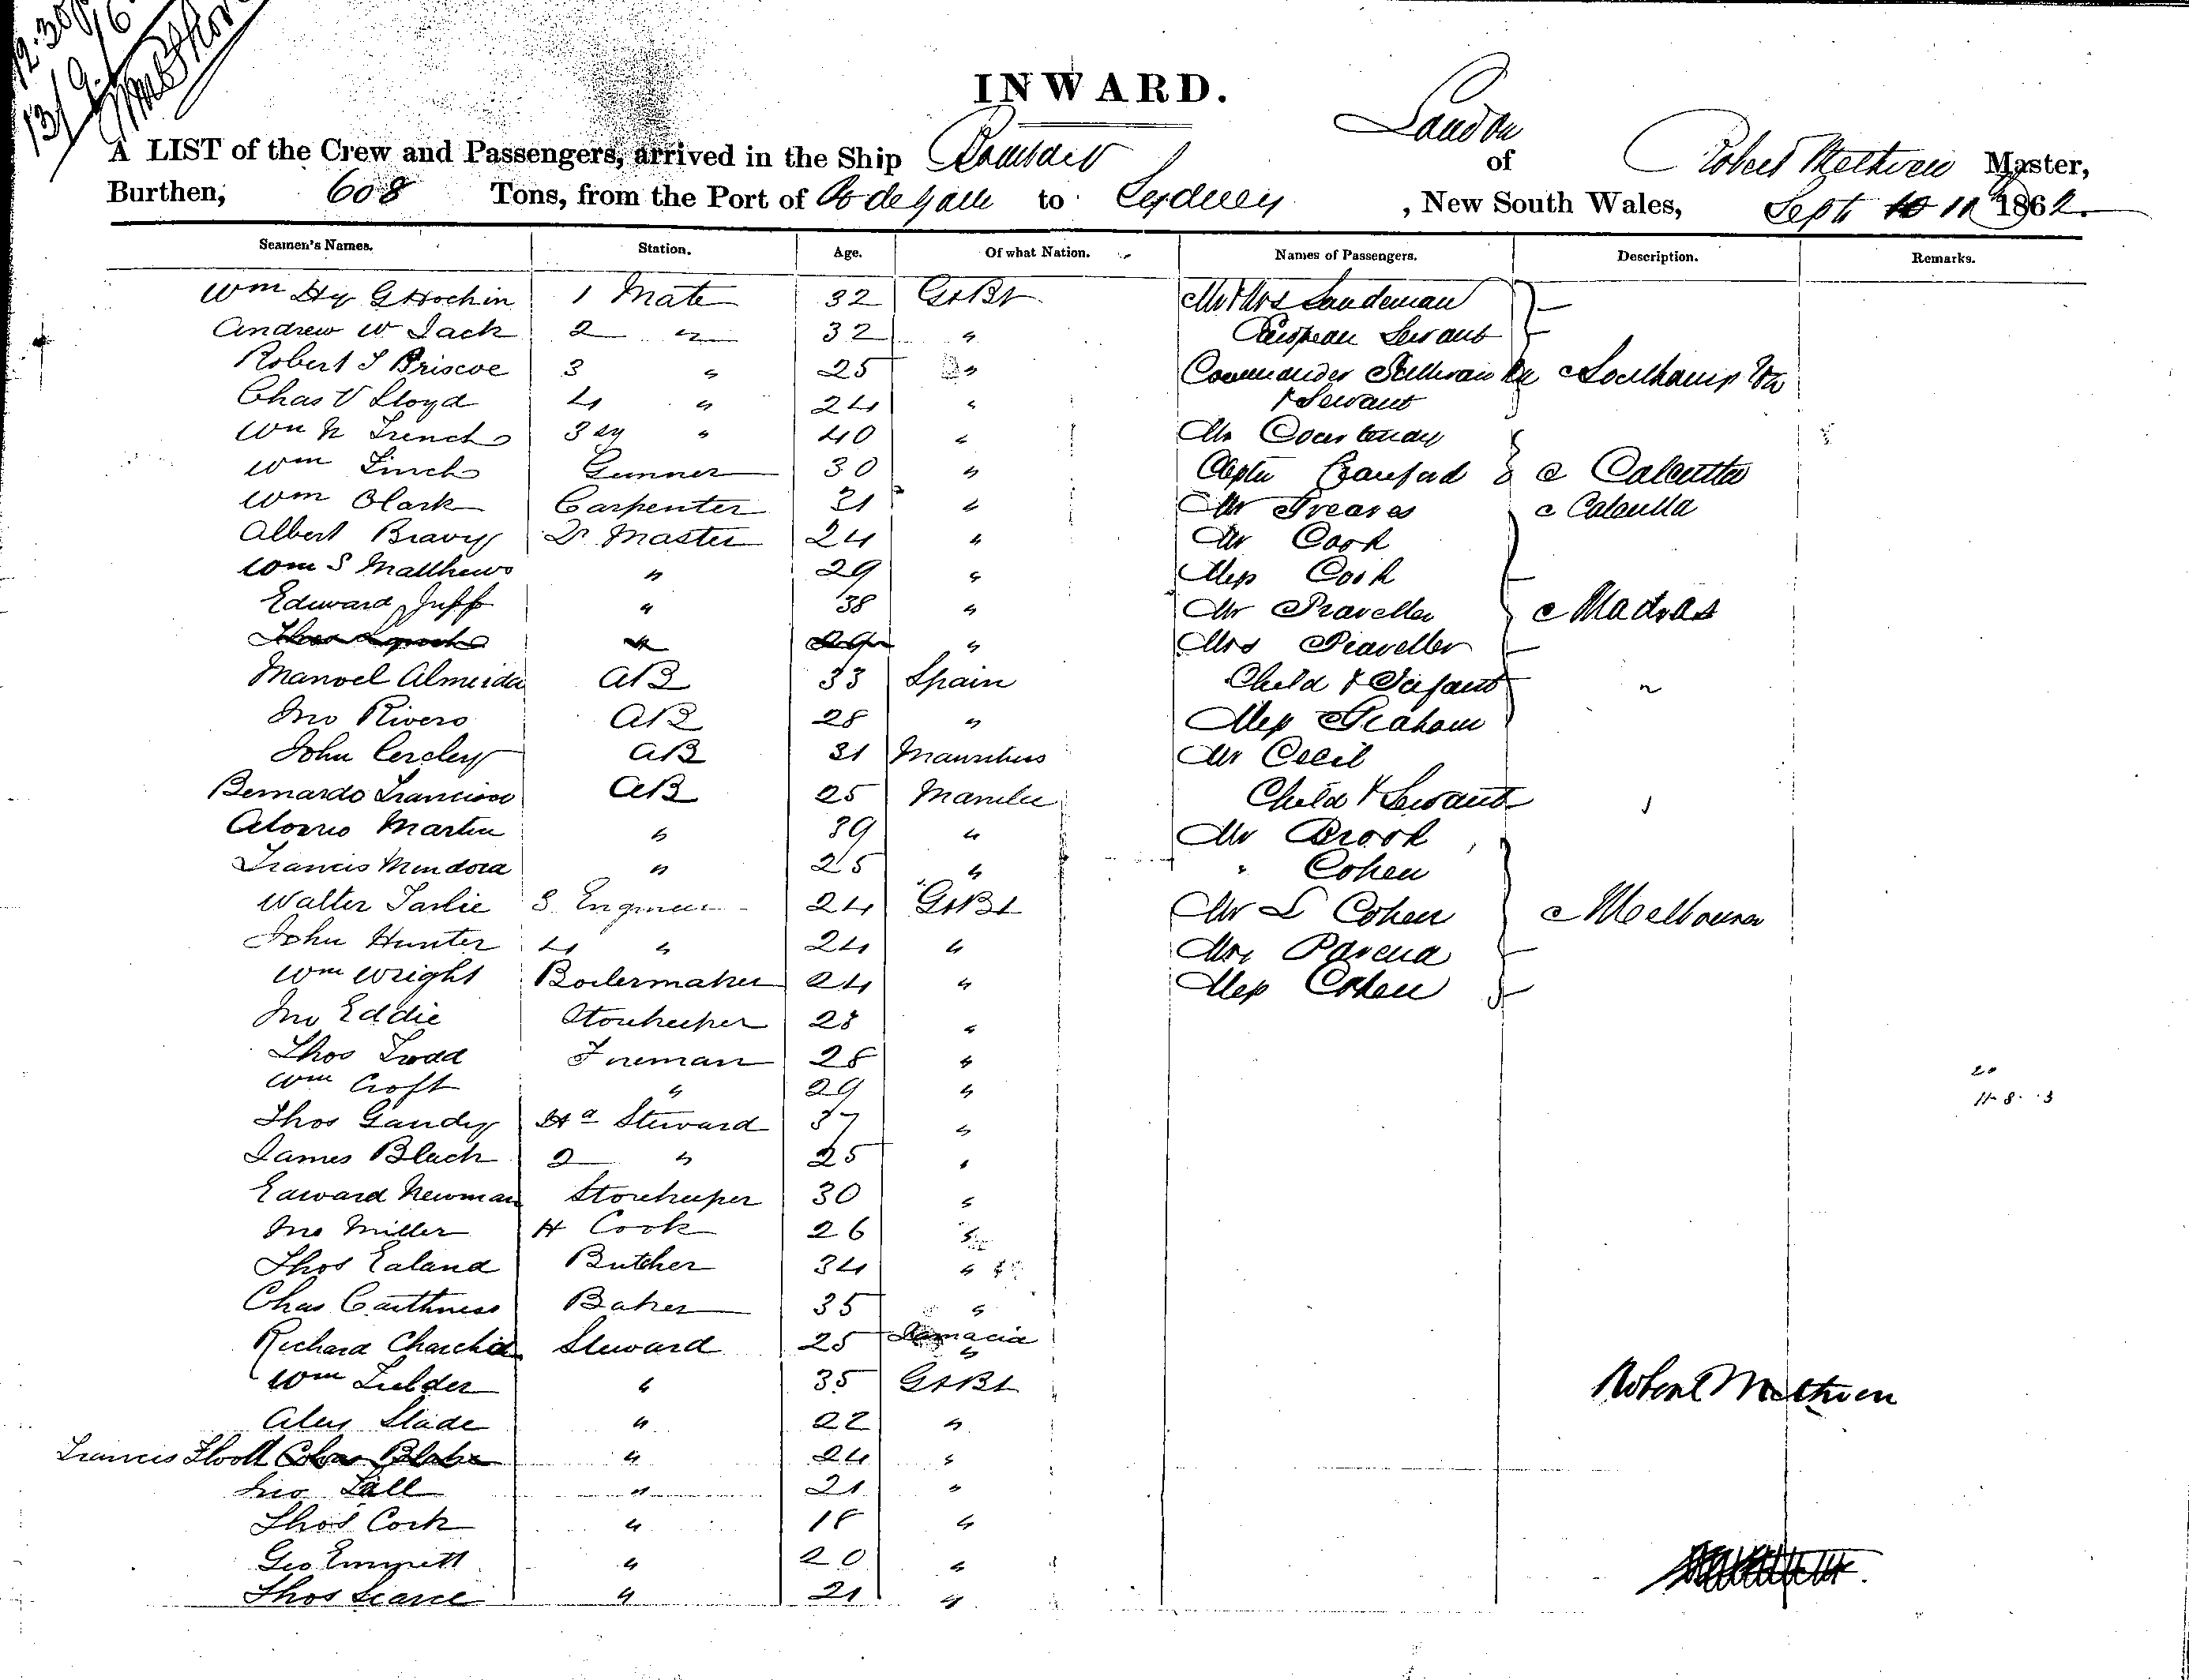 12.30
13/9/6
INWARD.
A LIST of the Crew and Passengers, arrived in the Ship of London Robert Methven Master,
Burthen, 608 Tons, from the Port of Pt de Galle to Sydney, New South Wales, Sept 10 11th 1862.
Seamen's Names. Station. Age. Of what Nation. Names of Passengers. Description. Remarks.
Wm Hy G Hochin 1 Mate 32 Gt Bt Mr & Mrs Sandeman
Andrew W Jack 2 " 32 " European Servant
Robert S Briscoe 3 " 25 " Commander Sullivan RN Southampton
Chas V Lloyd 4 " 24 " & Servant
Wm N French 3 " 40 " Mr Courtenay
Wm Finch Gunner 30 " Captn Crauford Calcutta
Wm Clark Carpenter 31 " Mr Calcutta
Albert Bravy Qr Master 24 " Mr Cook
Wm S Matthews " 29 " Miss Cook
Edward Jupp " 38 " Mr Traveller Madras
" " Mrs Traveller
Manoel Almeida AB 33 Spain Child & Infant "
Jno Rivero AB 28 " Miss Graham
John AB 31 Mauritius Mr Cecil
Bernardo Francisco AB 25 Manila Child & Servant
Alonzo Martin " 39 " Mr Brook
Francis Mendora " 25 " " Cohen
Walter 3 Engineer 24 Gt Bt Mr S Cohen Melbourne
John Hunter 4 " 24 " Mrs
Wm Wright Boilermaker 24 " Miss Cohen
Jno Eddie Storekeeper 28 "
Thos Todd Fireman 28 "
20
Wm Croft " 29 "
11-8-3
Thos Gandy Hd Steward 37 "
James Black 2 " 25 "
Edward Newman Storekeeper 30 "
Jno Miller H Cook 26 "
Thos Ealand Butcher 34 "
Chas Caithness Baker 35 "
Richard Steward 25 Jamacia "
Wm Fielder " 35 Gt Bt
Robert Methven
Alex Slade " 22 "
Francis Chas Blake " 24 "
Jno Lall " 21 "
Thos Cork " 18 "
Geo Emmett " 20 "
Thos Searce " 21 "